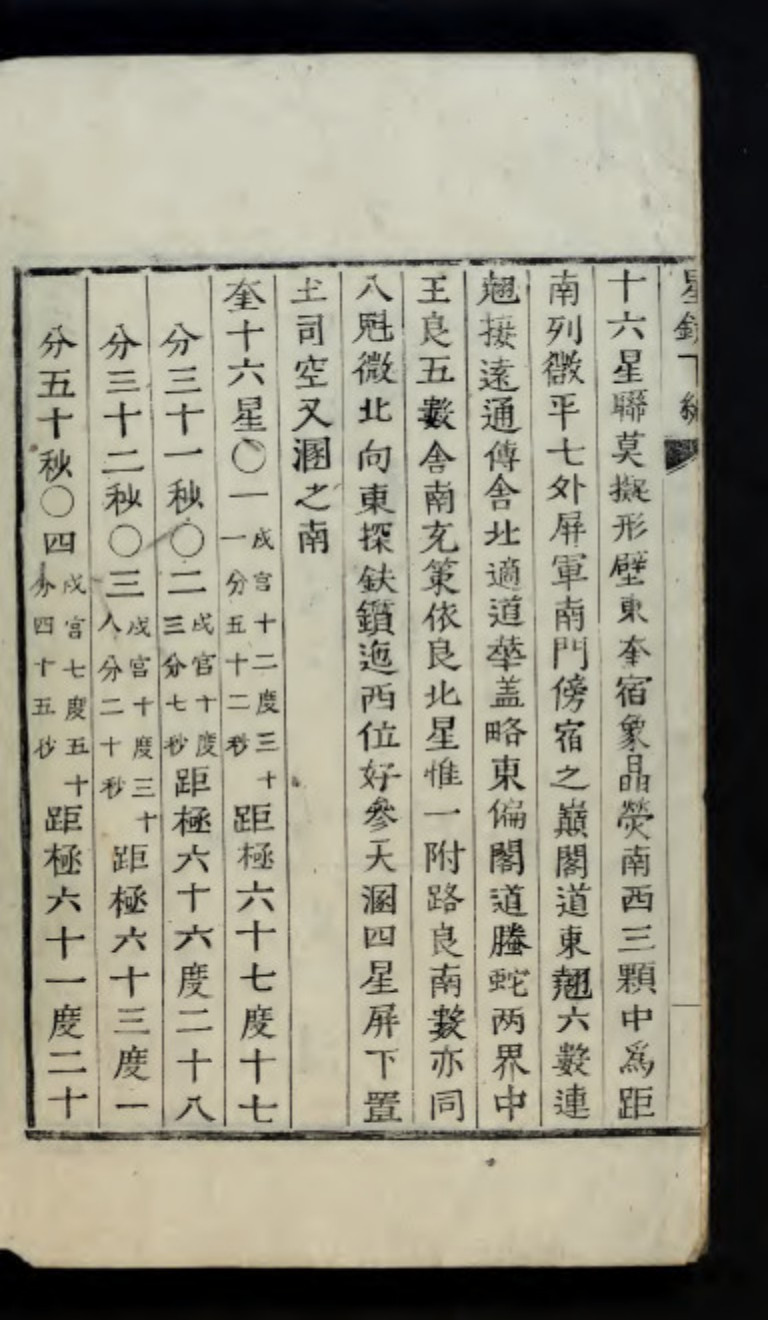 星鏡下編
十六星聯莫擬形壁東奎宿象晶熒南西三顆中爲距
南列微平七外屏軍南門傍宿之巔閣道東翹六數連
翹接遠通傅舍北適道華盖略東偏閣道螣蛇两界中
王良五數舍南充策依良北星惟一附路良南數亦同
八魁微北向東探鈇鑕迤西位好參天溷四星屏下置
土司空又溷之南
奎十六星〇一戌宮十二度三十一分五十二秒距極六十七度十七
分三十一秒〇二戌宮十度三分七秒距極六十六度二十八
分三十二秒〇三戌宮十度三十八分二十秒距極六十三度一
分五十秒〇四戌宮七度五十分四十五秒距極六十一度二十